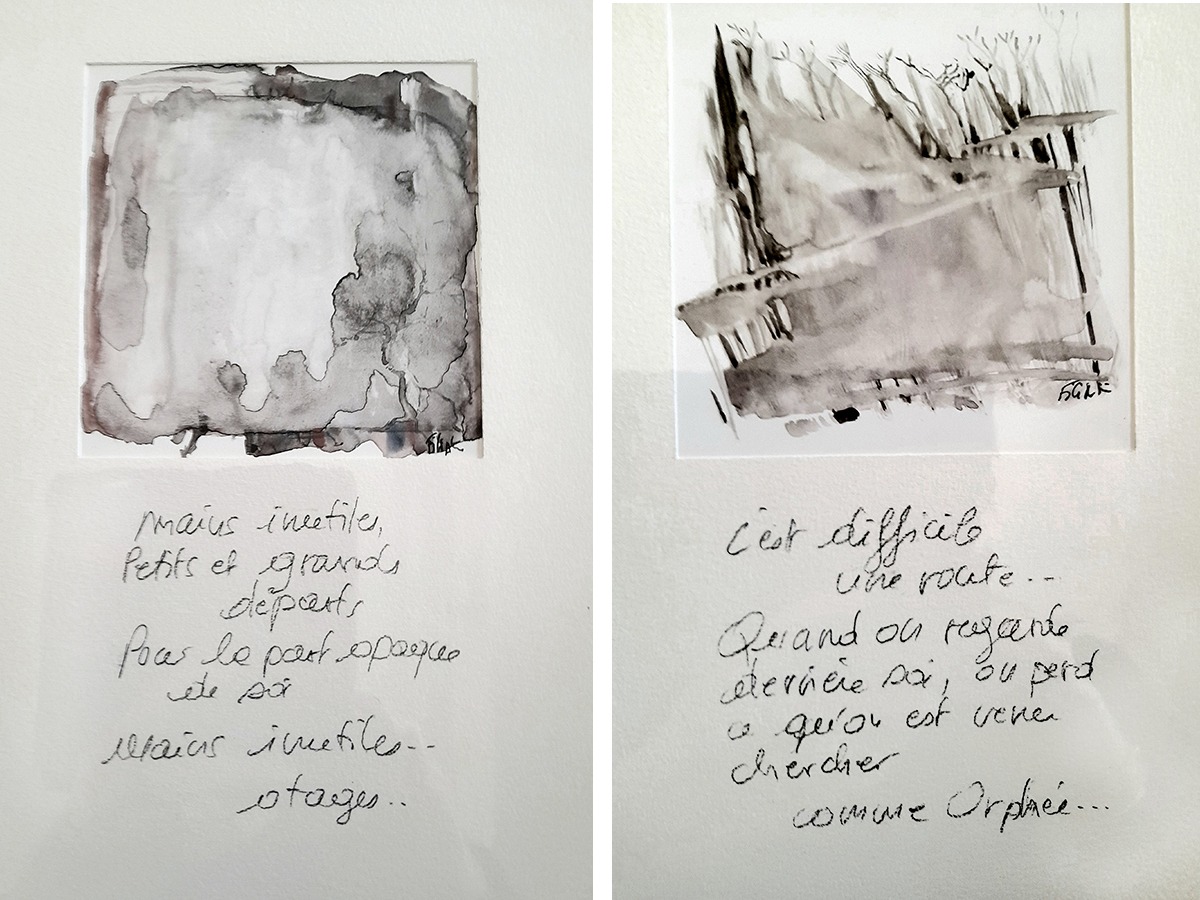 Mains inutiles,
Petits et grands
départs
Pour la part opaque
de soi
Mains inutiles..
otages..
C'est difficile
une route...
Quand on regarde
derrière soi, on perd
ce qu'on est venu
chercher
comme Orphée...